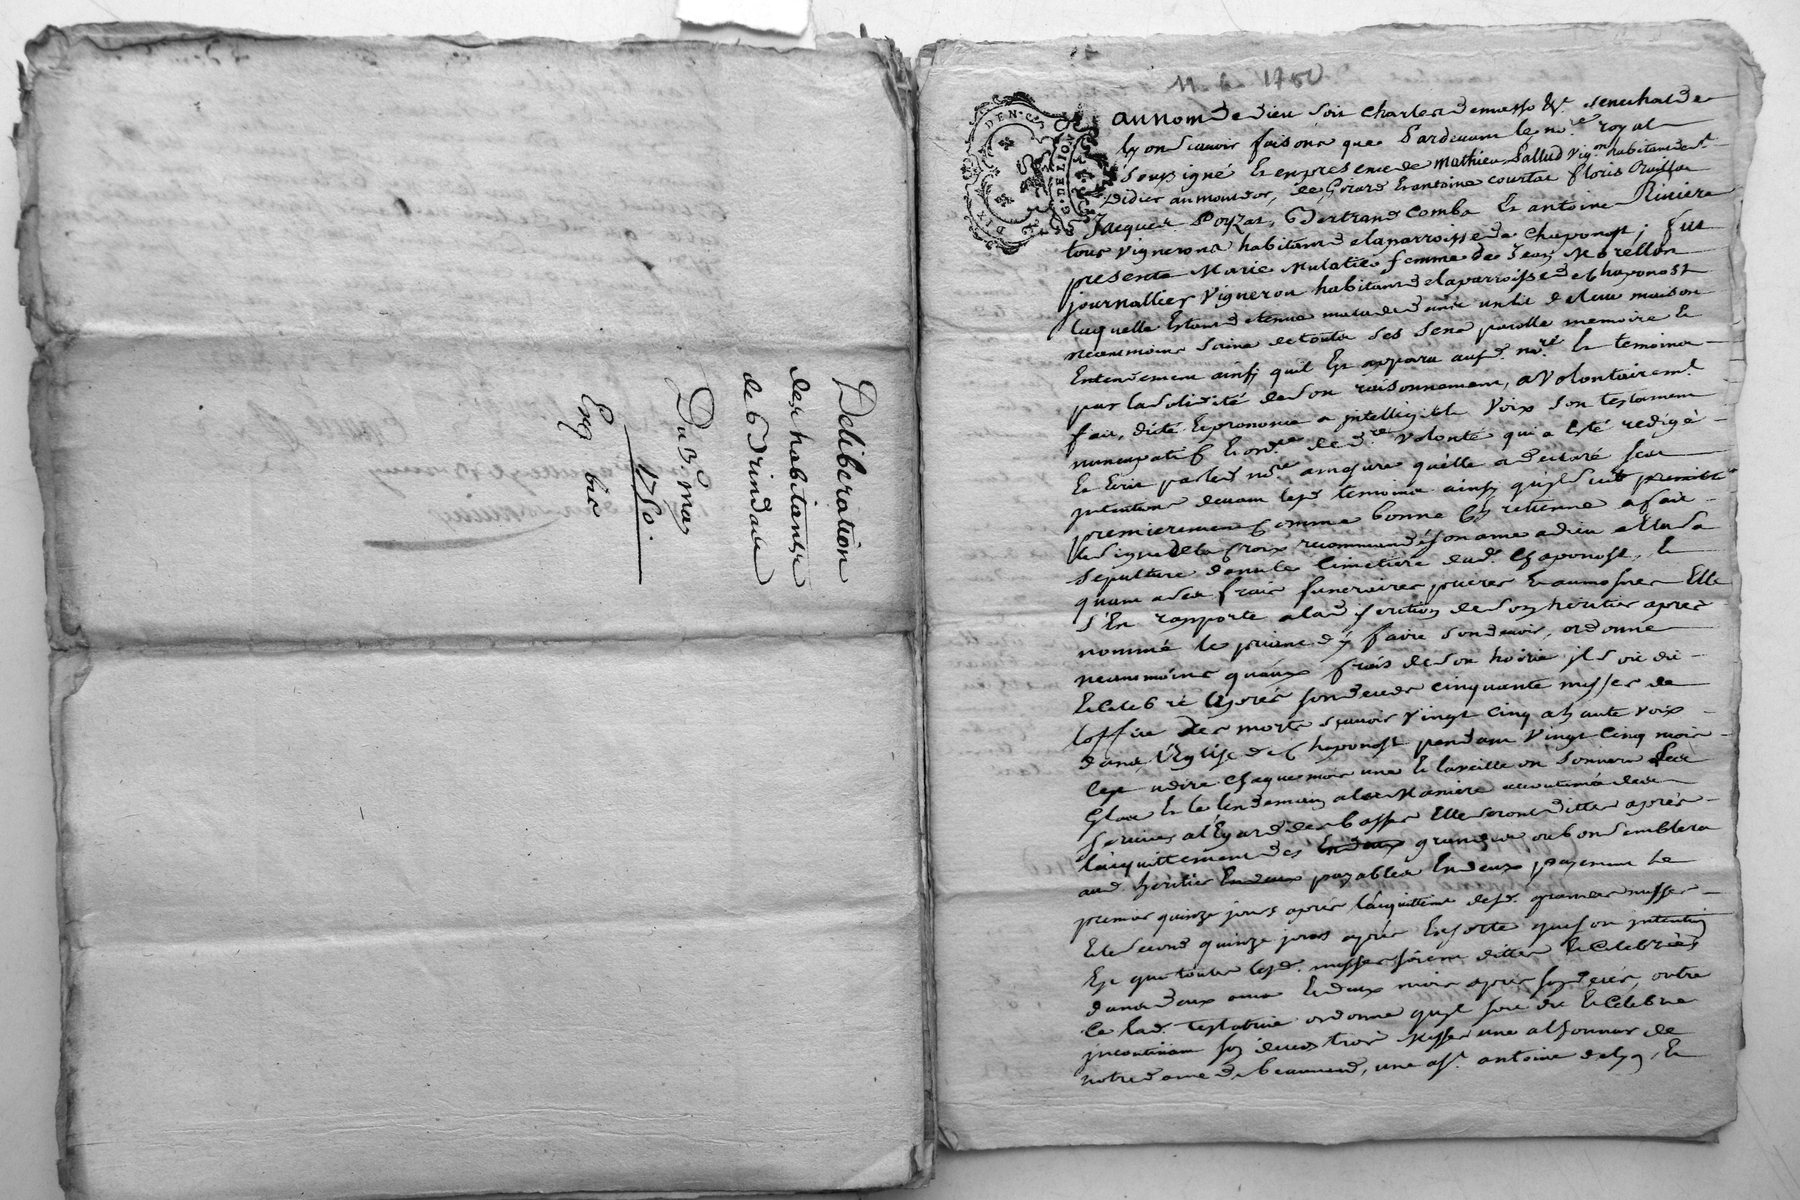 Deliberation
des habitants
de Brindas
Du 3e may
1750
Exp
bic
11 1750
DEN. G. DE LION DIX
au nom de dieu soit Charles demasso &r. senechal de
lyon scavoir faisons que pardevant le nre. royal
soussigné et en presence de mathieu Pallud vign.on habitant de st.
didier au mont dor, de Gerard et antoine courtat floris
Jacques Poyzat, Bertrand Comba et antoine Riviere
tous vignerons habitans de la parroisse de Chaponost; fut
presente Marie Mulatier femme de Jean Morellon
journallier vigneron habitant de la parroisse de Chaponost
laquelle Etant detenue malade dans un lit de leur maison
neantmoins saine de touts ses sens parolle memoire et
Entendement ainsy quil Est apparu aud. nre. et temoins
par la solidité de son raisonnement, a volontairemt.
fait, dicté et prononcé a jntelligible voix son testament
nuncupatif et ordre. de dre. volonté qui a Esté redigé
et Ecrit par led nre a mesure qu'elle a declaré ses
jntentions devant lesd temoins ainsy quil suit
premierement Comme bonne Chretienne a fait
le signe de la Croix, recommandé son ame a dieu Elû sa
sepulture dans le Cimetiere dud. Chaponost, et
quant a ses frais funeraires prieres et aumosnes Elle
s'En rapporte a la discrétion de son heritier apres
nommé le priant d'y faire son devoir, ordonne
neantmoins quaux frais de son hoirie jl soit dit
et Celebré apres son deceds cinquante messes de
loffice des morts scavoir vingt cinq a haute voix
dans l'Eglise de Chaponost pendant vingt cinq mois
Cest a dire chaque mois une et la veille on sonnera les
Glas et le lendemain a la Maniere accoutumée des
services a l'Egard des basses Elle seront dittes apres
lacquittement des grandes ou bon semblera
aud. heritier payables En deux payement le
premier quinze jours apres lacquittemt desd. grandes messes
et le second quinze jours apres Ensorte que son jntention
Est que toutes lesd. messes soient dittes et Celebrées
dans deux ans et deux mois apres son deces, outre
Ce lad. testatrice ordonne quil soit dit et Celebré
jncontinant son deces trois Messes une a lhonneur de
notre dame de beaunand, une a st. antoine de lyon, et